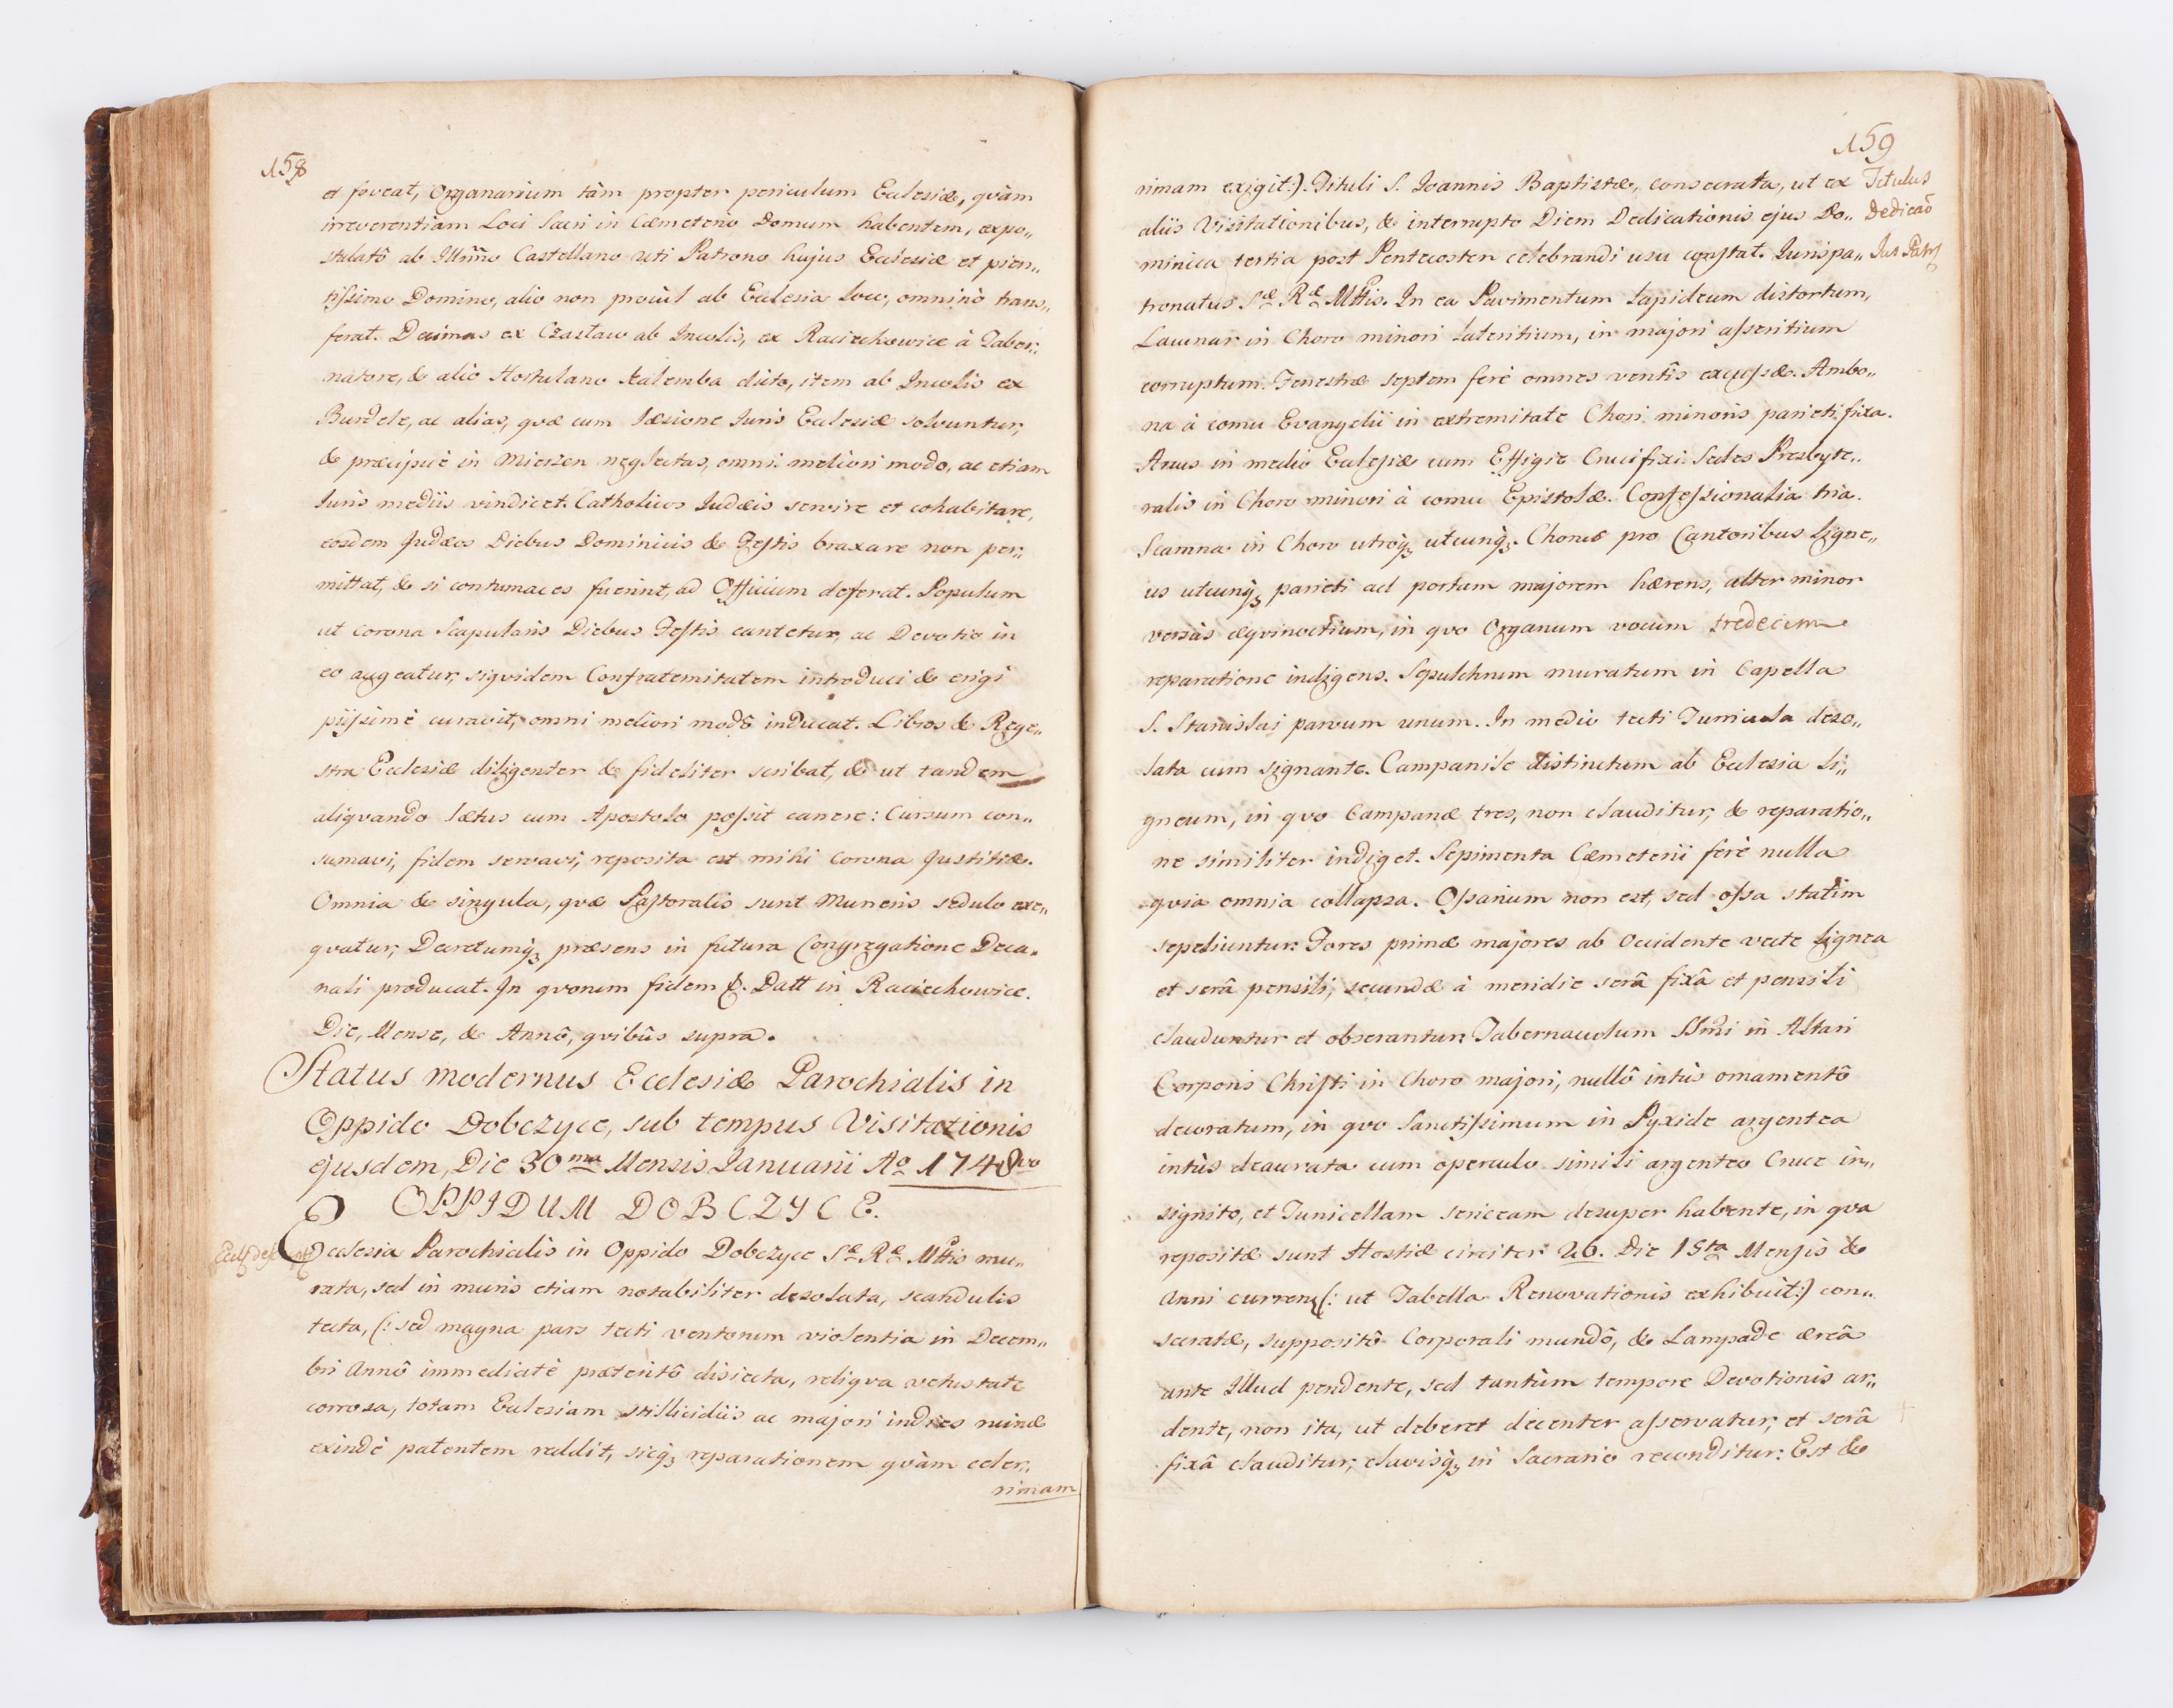 158
et foveat, Organarium tàm propter periculum Ecclesiæ, qvàm
irreverentiam Loci Sacri in Cæmeterio Domum habentem, expo„
stulatô ab Illmo Castellano uti Patrono hujus Ecclesiæ et pien„
tissimo Domino, alio non procùl ab Ecclesia loco, omninò trans„
ferat. Decimas ex Czasław ab Incolis, ex Raciechowice à Taber„
natore, & alio Hortulano Kalemba dicto, item ab Incolis ex
Burdele, ac alias, qvæ cum læsione Juris Ecclesiæ solvuntur,
& præcipuè in Mierzen neglectas, omni meliori modo, ac etiam
Juris mediis vindicet. Catholicos Judæis servire et cohabitare,
eosdem Judæos Diebus Dominicis & Festis braxare non per„
mittat, & si contumaces fuerint, ad Officium deferat. Populum
ut Corona Scapularis Diebus Festis cantetur, ac Devotio in
eo augeatur, siqvidem Confraternitatem introduci & erigi
piissimè curavit, omni meliori modô inducat. Libros & Rege„
stra Ecclesiæ diligenter & fideliter scribat, & ut tandem
aliqvando lætus cum Apostolo possit canere: Cursum con„
sumavi, fidem servavi, reposita est mihi Corona Justitiæ.
Omnia & singula, qvæ Pastoralis sunt Muneris sedulo exe„
qvatur, Decretumq; præsens in futura Congregatione Deca„
nali producat. In qvorum fidem &. Datt in Raciechowice.
Die, Mense, & Annô, qvibûs supra.
Status modernus Ecclesiæ Parochialis in
Oppido Dobczyce, sub tempus Visitationis
ejusdem, Die 30ma Mensis Januarii Ao 1748vo
OPPIDUM DOBCZYCE.
Ecclesia Parochialis in Oppido Dobczyce Sæ Ræ Mttis mu„
rata, sed in muris etiam notabiliter desolata, scandulis
tecta, (: sed magna pars tecti ventorum violentia in Decem„
bri Annô immediatè præteritô disiecta, reliqva vetustate
corrosa, totam Ecclesiam stillicidiis ac majori indies ruinæ
exindè patentem reddit, sicq; reparationem qvàm celer„
rimam
159
rimam exigit:). Tituli S. Joannis Baptistæ, consecrata, ut ex
Titulus
aliis Visitationibus, & interrupto Diem Dedicationis ejus Do„
Dedicaõ
minica tertia post Pentecosten celebrandi usu constat. Jurispa„
Jus Patr
tronatus Sæ Ræ Mttis. In ea Pavimentum lapideum distortum,
Lacunar in Choro minori lateritium, in majori asseritium
corruptum. Fenestræ septem ferè omnes ventîs excussæ. Ambo„
na à cornu Evangelii in extremitate Chori minoris parieti fixa.
Arcus in medio Ecclesiæ cum Effigie Crucifixi. Sedes Presbyte„
ralis in Choro minori à cornu Epistolæ. Confessionalia tria.
Scamna in Choro utroq; utcunq;. Chorus pro Cantoribus Ligne„
us utcunq; parieti ad portam majorem hærens, alter minor
versùs æqvinoctium, in qvo Organum vocum tredecim
reparatione indigens. Sepulchrum muratum in Capella
S. Stanislai parvum unum. In medio tecti Turricula deso„
lata cum signante. Campanile distinctum ab Ecclesia li„
gneum, in qvo Campanæ tres, non clauditur, & reparatio„
ne similiter indiget. Sepimenta Cæmeterii ferè nulla
qvia omnia collapsa. Ossarium non est, sed ossa statim
sepeliuntur. Fores primæ majores ab Occidente vecte lignea
et serâ pensili, secundæ à meridie serâ fixâ et pensili
clauduntur et obserantur. Tabernaculum SSmi in Altari
Corporis Christi in Choro majori, nullô intùs ornamentô
decoratum, in qvo Sanctissimum in Pyxide argentea
intùs deaurata cum operculo simili argenteo Cruce in„
signito, et Tunicellam sericeam desuper habente, in qva
repositæ sunt Hostiæ circiter 26. Die 15ta Mensis &
Anni curren (: ut Tabella Renovationis exhibuit:) con„
secratæ, suppositô Corporali mundô, & Lampade æreâ
ante Illud pendente, sed tantùm tempore Devotionis ar„
dente, non ita, ut deberet decenter asservatur, et serâ
fixâ clauditur, clavisq; in Sacrario reconditur. Est &